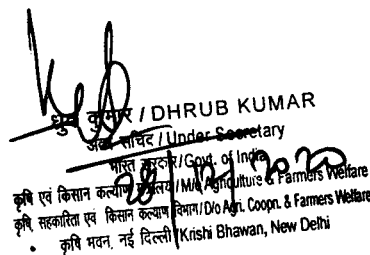 ध्रुव कुमार / DHRUB KUMAR
अवर सचिव / Under Secretary
भारत सरकार / Govt. of India
28/12/2020
कृषि एवं किसान कल्याण मंत्रालय / M/o Agriculture & Farmers Welfare
कृषि, सहकारिता एवं किसान कल्याण विभाग / D/o Agri. Coopn. & Farmers Welfare
कृषि भवन, नई दिल्ली / Krishi Bhawan, New Delhi